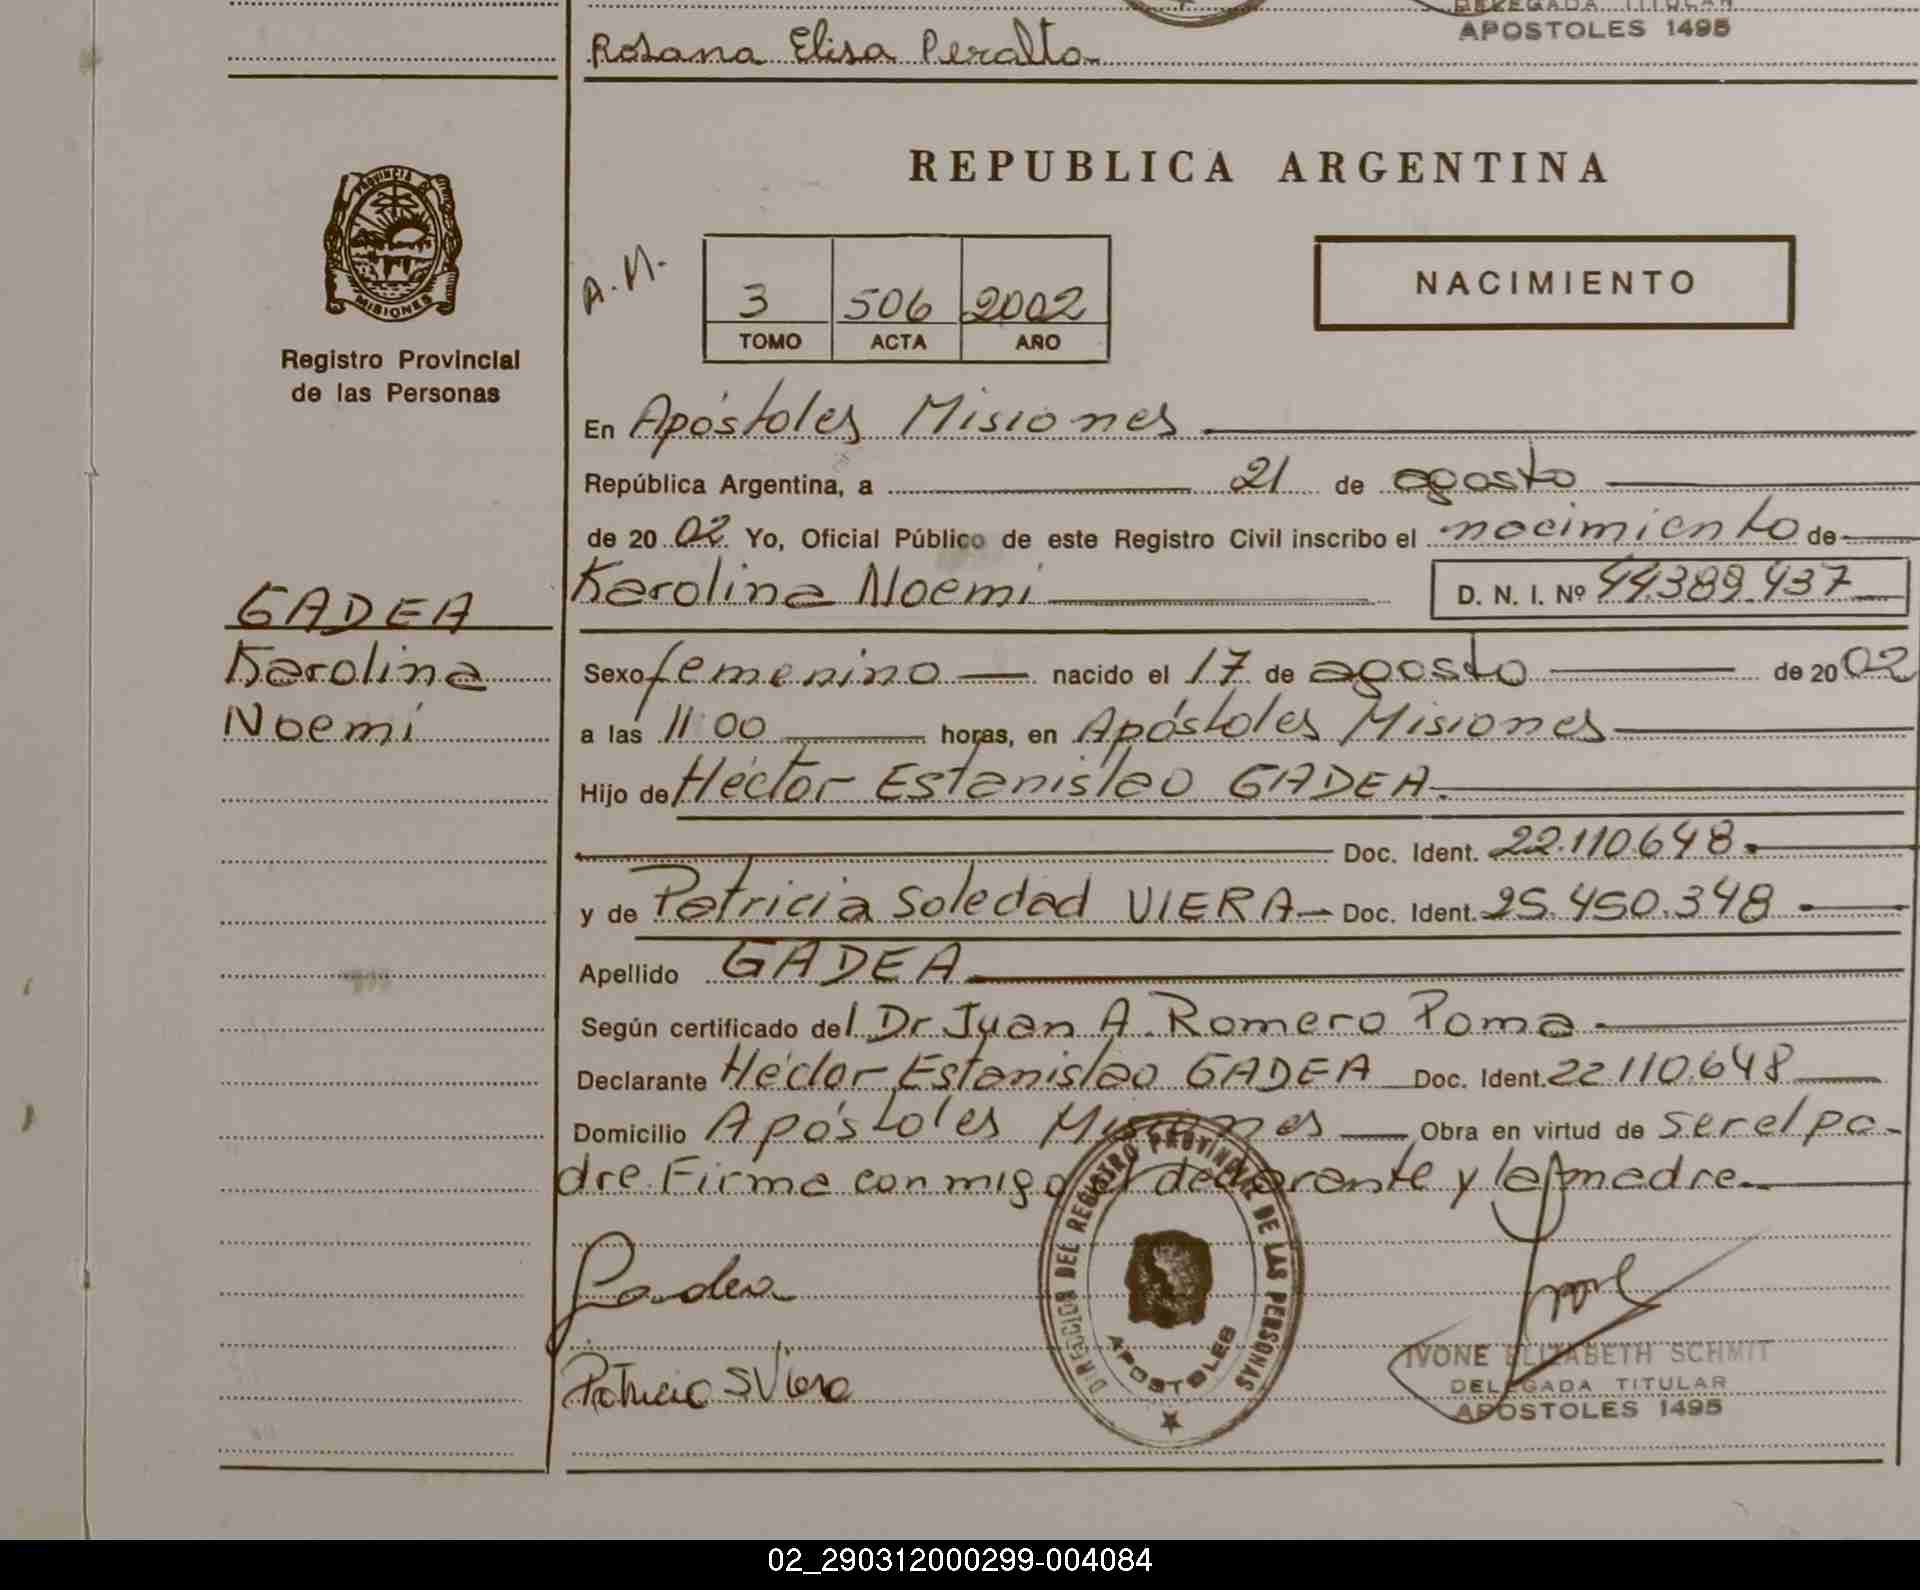 DELEGADA TITULAR
APOSTOLES 1495
Rosana Elisa Peralta
PROVINCIA DE
MISIONES
Registro Provincial
de las Personas
REPUBLICA ARGENTINA
A.M.
3 506 2002
TOMO ACTA AÑO
NACIMIENTO
En Apóstoles Misiones
República Argentina, a 21 de agosto
de 2002 Yo, Oficial Público de este Registro Civil inscribo el nacimiento de
Karolina Noemi D. N. I. Nº 44.389.437
GADEA
Karolina
Noemí
Sexo femenino nacido el 17 de agosto de 2002
a las 11 00 horas, en Apóstoles Misiones
Hijo de Héctor Estanislao GADEA
Doc. Ident. 22.110.648
y de Patricia Soledad VIERA Doc. Ident. 25.450.348
Apellido GADEA
Según certificado del Dr Juan A. Romero Poma
Declarante Héctor Estanislao GADEA Doc. Ident. 22 110.648
Domicilio Apóstoles Misiones Obra en virtud de ser el pa-
dre. Firma conmigo el declarante y la madre
Gadea
Patricia S Viera
DIRECCION DEL REGISTRO PROVINCIAL DE LAS PERSONAS
APOSTOLES
IVONE ELIZABETH SCHMIT
DELEGADA TITULAR
APOSTOLES 1495
02_290312000299-004084